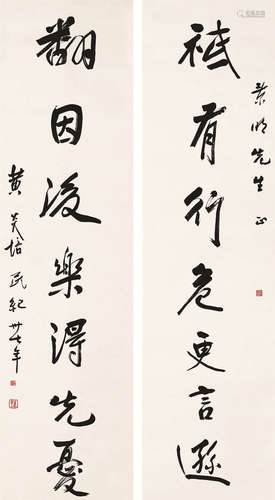 景明先生正
祗有行危更言遜
翻因後樂得先憂
黄炎培民紀卅七年